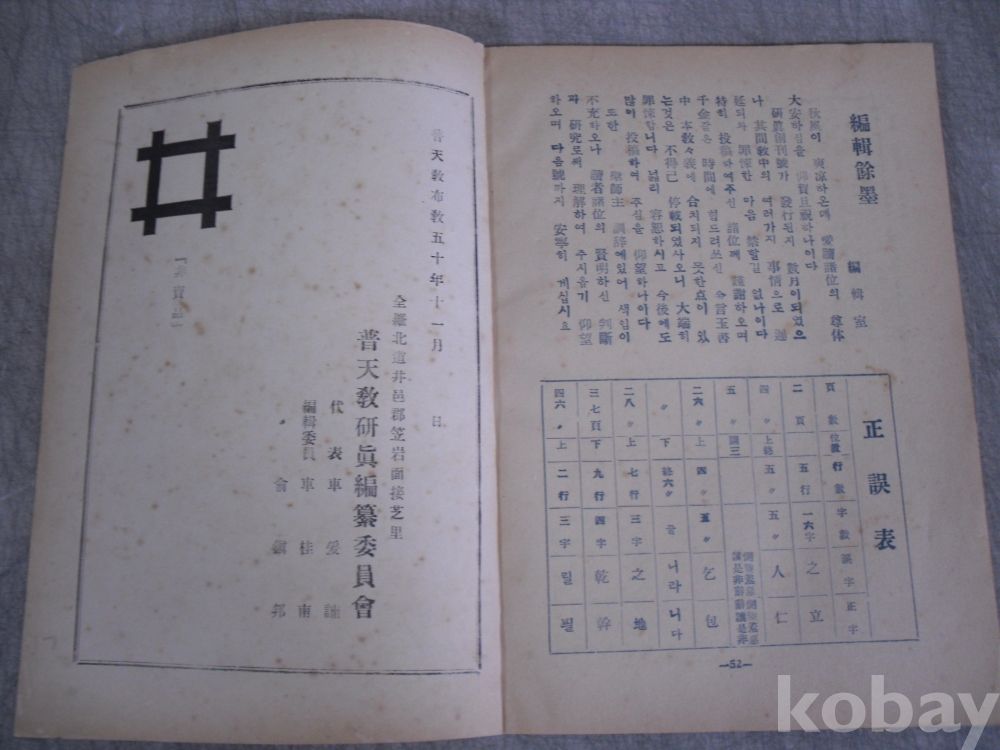 編輯餘墨
編輯室
秋風이 爽凉하온데 愛讀諸位의 尊体
大安하심을 仰賀且祝하나이다
研農創刊號가 發行된지 數月이되였으
나 其間敎中의 여러가지 事情으로 遲
延되와 罪悚한 마음 禁할길 없나이다
特히 投稿하여주신 諸位께 謹謝하오며
千金같은 時間에 힘드려쓰신 金言玉書
中 本敎々義에 合치되지 못한点이 있
는것은 不得已 停載되였사오니 大端히
罪悚합니다 널리 容恕하시고 今後에도
많이 投稿하여 주심을 仰望하나이다
또한 聖師主 訓辞에있어 색임이
不充하오나 讀者諸位의 賢明하신 判斷
과 研究로써 理解하여 주시옵기 仰望
하오며 다음號까지 安寧히 계십시요
正誤表
頁數 位置 行數 字數 誤字 正字
二頁 五行 一六字 之 立
四〃 上終 五〃 五〃 人 仁
五〃 圖三
二六〃 上 四〃 五〃 乞 包
〃 下 終六〃 글 니라 니다
二八〃 上 七行 三字 之 地
三七頁 下 九行 四字 乾 幹
四六〃 上 二行 三字 릴 될
—52—
普天敎布敎五十年十一月 日
全羅北道井邑郡笠岩面接芝里
普天敎研眞編纂委員會
代表 車愛
編輯委員 車桂南
〃 俞 邦
「非賣品」
kobay